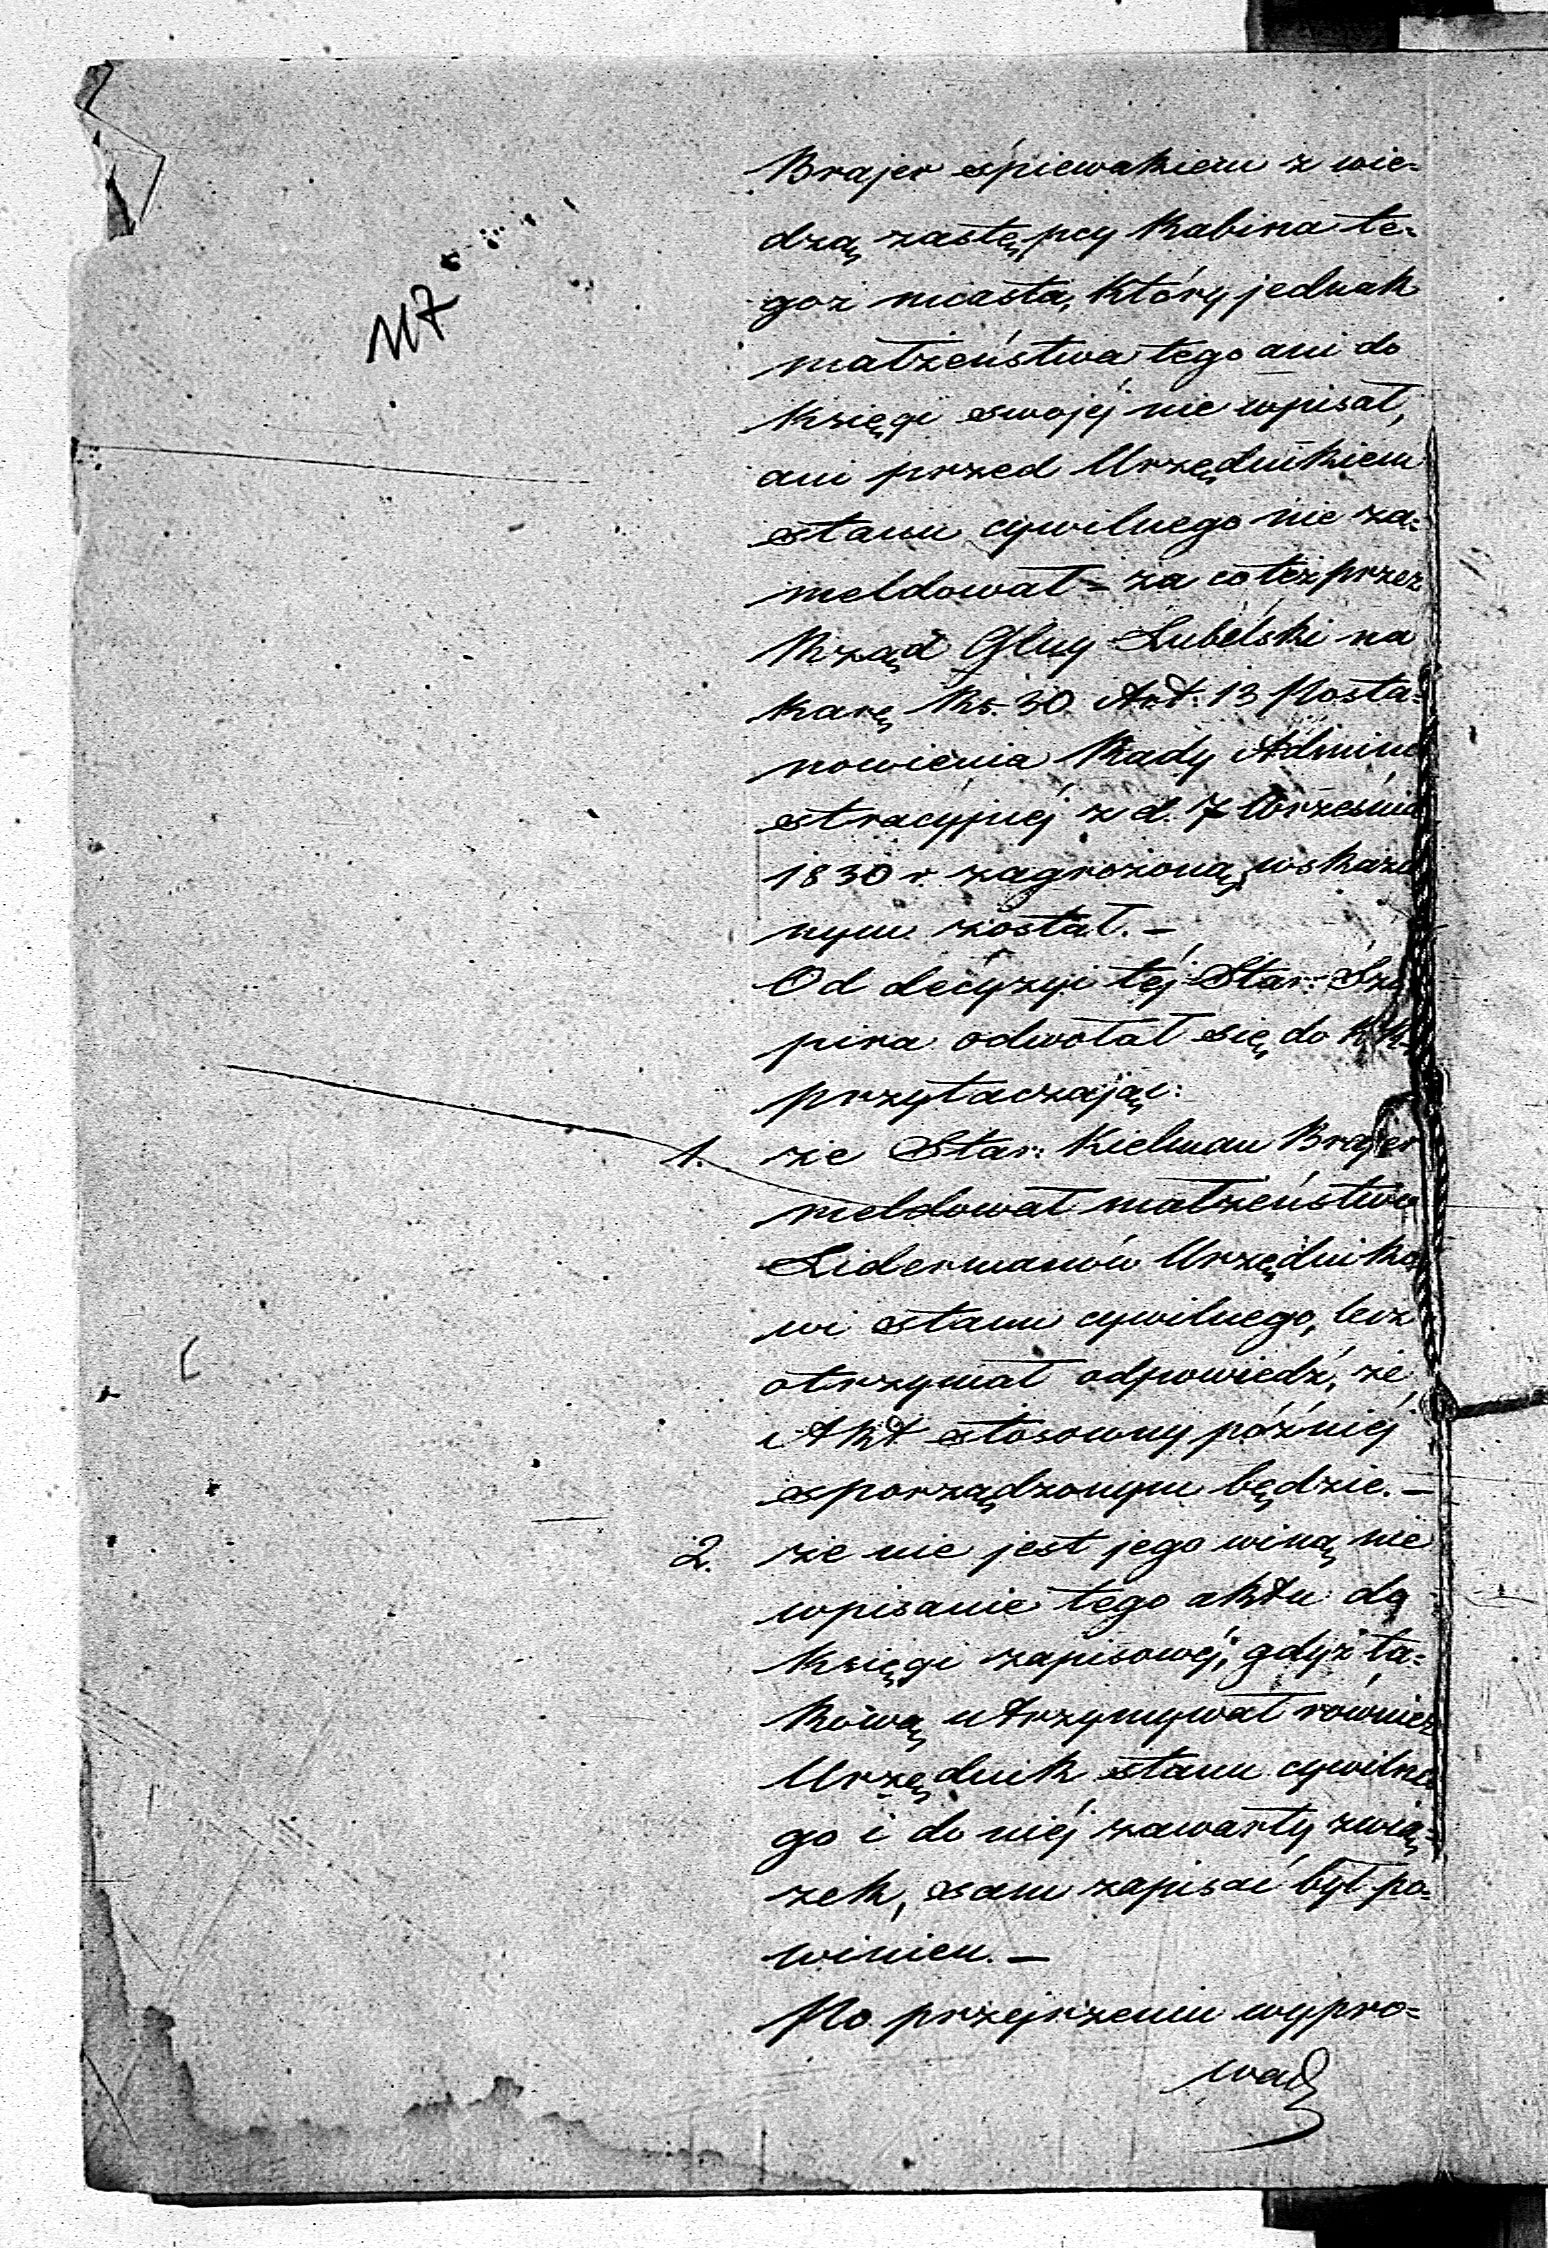 117
Brajer śpiewakiem z wie-
dzą zastępcy Rabina te-
goż miasta, który jednak
małżeństwa tego ani do
księgi swojéj nie wpisał,
ani przed Urzędnikiem
stanu cywilnego nie za-
meldował - za co też przez
Rząd Gluy Lubelski na
karę Rs. 30 Art. 13 Posta-
nowienia Rady Admini
stracyjnéj z d. 7 Września
1830 r. zagrożoną, wskaza
nym został. -
Od decyzyi téj Star: Sza
pira odwołał się do K. R.
przytaczając:
1. że Star: Kielman Brajer
meldował małżeństwo
Lidermanów Urzędniko
wi stanu cywilnego, lecz
otrzymał odpowiedź, że
Akt stosowny późniéj
sporządzonym będzie. -
2. że nie jest jego winą nie
wpisanie tego aktu do
księgi zapisowéj, gdyż ta-
kową utrzymywał również
Urzędnik stanu cywilne
go i do niéj zawarty zwią-
zek, sam zapisać był po-
winien. -
Po przejrzeniu wypro-
wadz